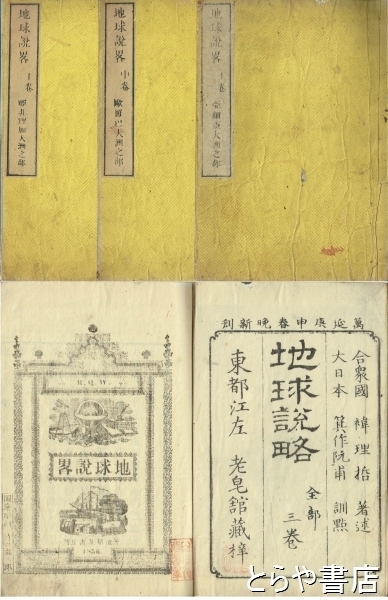 地球説畧
下巻
地球説畧
中巻
歐羅巴大洲之部
地球説畧
上巻
亞細亞大洲之部
R.Q.W.
地球說畧
1856
萬延庚申春晩新刻
合衆國 褘理哲 著述
大日本 箕作阮甫 訓點
地球說略
全部
三卷
東都江左 老皂館藏梓
とらや書店